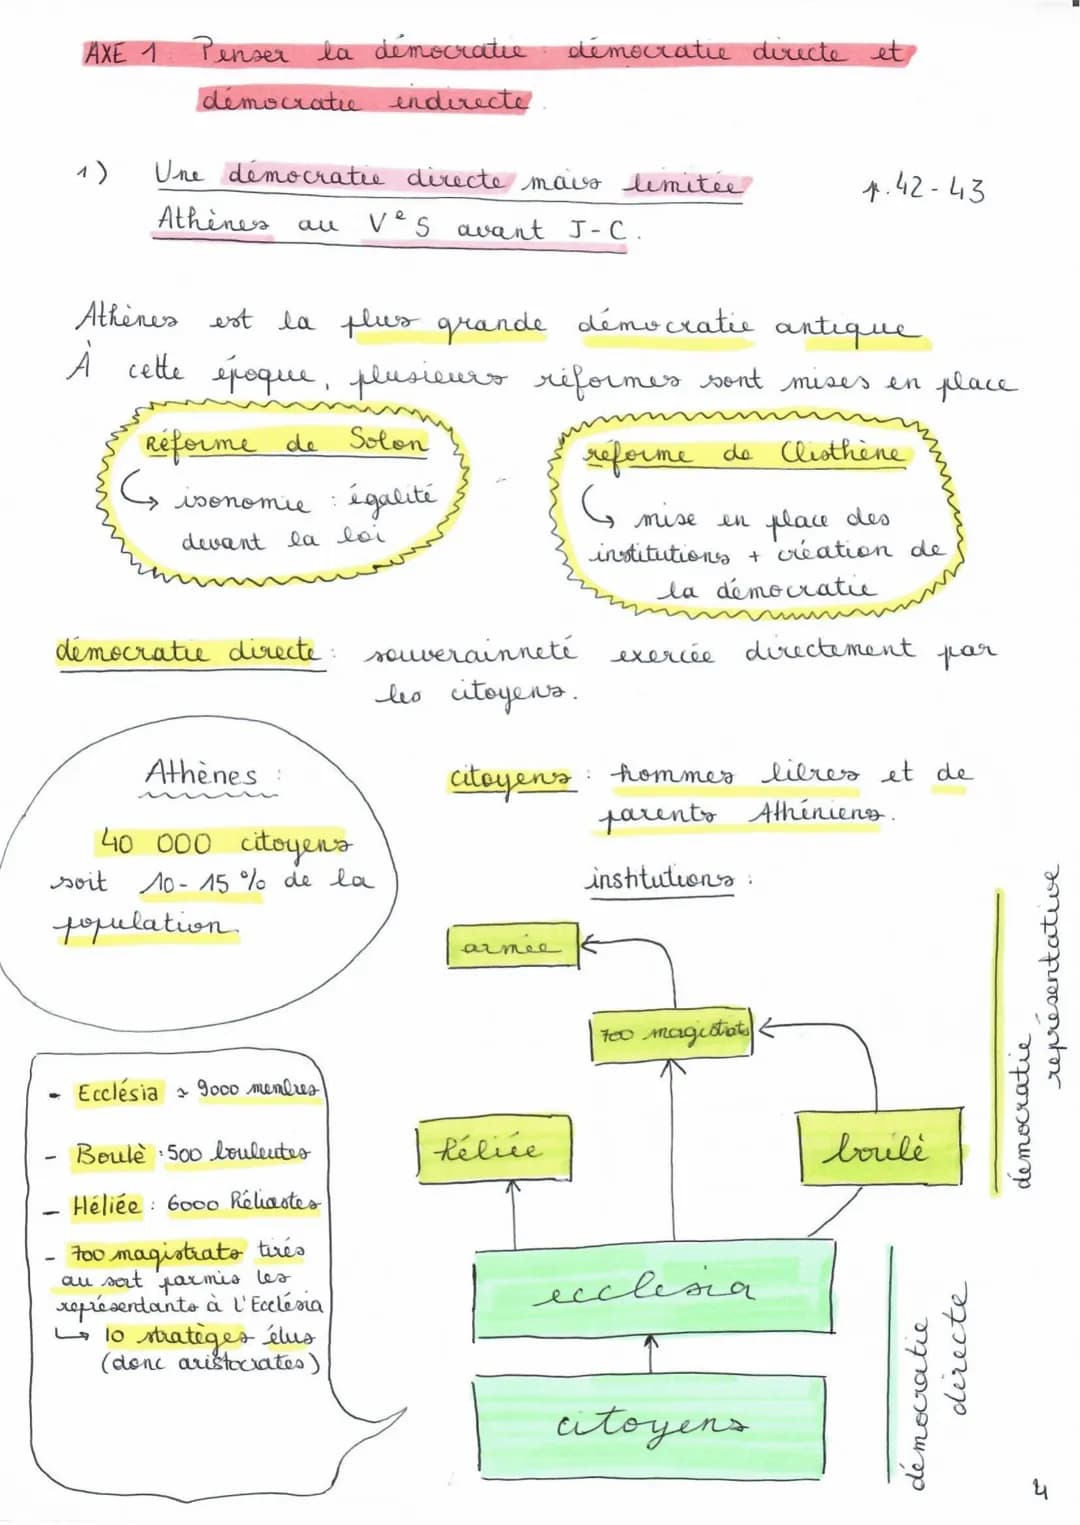 AXE 1 Penser la démocratie : démocratie directe et
démocratie indirecte.
1) Une démocratie directe mais limitée
p.42-43
Athènes au Vᵉ S avant J-C.
Athènes est la plus grande démocratie antique
À cette époque, plusieurs réformes sont mises en place
Réforme de Solon
↳ isonomie : égalité
devant la loi
réforme de Clisthène
↳ mise en place des
institutions + création de
la démocratie
démocratie directe : souverainneté exercée directement par
les citoyens.
Athènes :
40 000 citoyens
soit 10-15 % de la
population.
citoyens : hommes libres et de
parents Athéniens.
institutions :
armée
700 magistrats
héliée
boulè
ecclesia
citoyens
démocratie
représentative
démocratie
directe
- Ecclésia ~ 9000 membres
- Boulè : 500 bouleutes
- Héliée : 6000 Héliastes
- 700 magistrats tirés
au sort parmis les
représentants à l'Ecclésia
↳ 10 stratèges élus
(donc aristocrates)
4